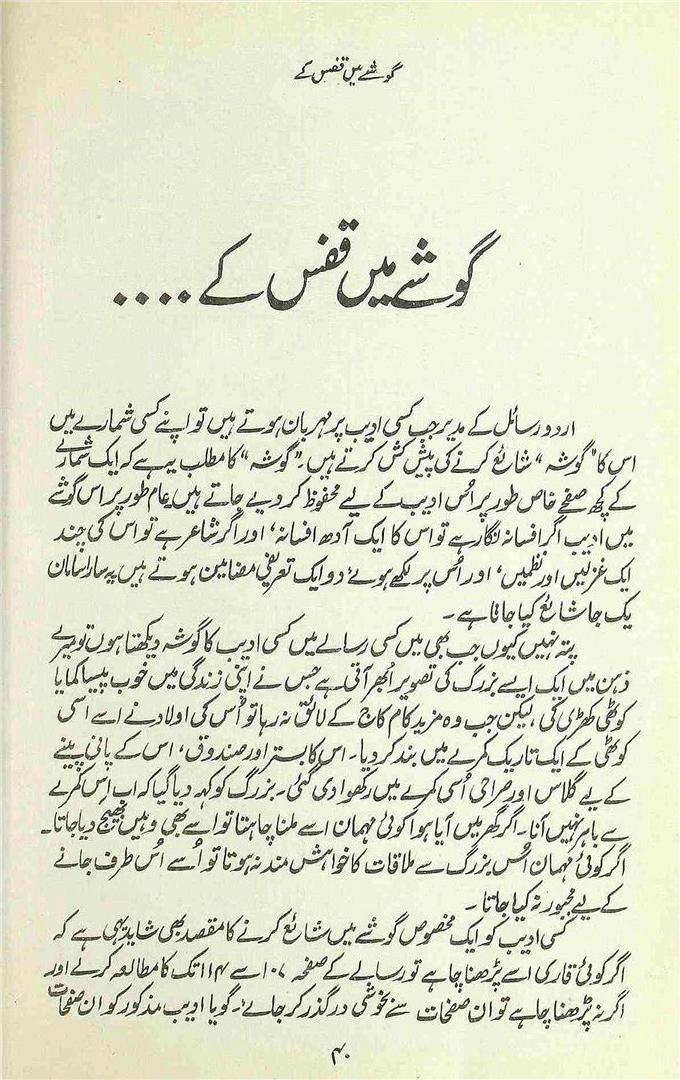 گوشے میں قفس کے
گوشے میں قفس کے ....
اردو رسائل کے مدیر جب کسی ادیب پر مہربان ہوتے ہیں تو اپنے کسی شمارے میں
اس کا "گوشہ" شائع کرنے کی پیش کش کرتے ہیں۔ "گوشہ" کا مطلب یہ ہے کہ ایک شمارے
کے کچھ صفحے خاص طور پر اُس ادیب کے لیے محفوظ کر دیے جاتے ہیں عام طور پر اس گوشے
میں ادیب اگر افسانہ نگار ہے تو اس کا ایک آدھ افسانہ، اور اگر شاعر ہے تو اس کی چند
ایک غزلیں اور نظمیں، اور اُس پر لکھے ہوئے دو ایک تعریفی مضامین ہوتے ہیں یہ سارا سامان
یک جا شائع کیا جاتا ہے۔
پتہ نہیں کیوں جب بھی میں کسی رسالے میں کسی ادیب کا گوشہ دیکھتا ہوں تو میرے
ذہن میں ایک ایسے بزرگ کی تصویر اُبھر آتی ہے جس نے اپنی زندگی میں خوب پیسا کمایا
کوٹھی کھڑی کی، لیکن جب وہ مزید کام کاج کے لائق نہ رہا تو اُس کی اولاد نے اسے اسی
کوٹھی کے ایک تاریک کمرے میں بند کر دیا۔ اس کا بستر اور صندوق، اس کے پانی پینے
کے لیے گلاس اور صراحی اُسی کمرے میں رکھوا دی گئی۔ بزرگ کو کہہ دیا گیا کہ اب اِس کمرے
سے باہر نہیں آنا۔ اگر گھر میں آیا ہوا کوئی مہمان اسے ملنا چاہتا تو اسے بھی وہیں بھیج دیا جاتا۔
اگر کوئی مہمان اُس بزرگ سے ملاقات کا خواہش مند نہ ہوتا تو اُسے اُس طرف جانے
کے لیے مجبور نہ کیا جاتا۔
کسی ادیب کو ایک مخصوص گوشے میں شائع کرنے کا مقصد بھی شاید یہی ہے کہ
اگر کوئی قاری اسے پڑھنا چاہے تو رسالے کے صفحہ ۱۰۷ سے ۱۱۴ تک کا مطالعہ کر لے اور
اگر نہ پڑھنا چاہے تو ان صفحات سے بخوشی درگذر کر جائے۔ گویا ادیب مذکور کو ان صفحات
۴۰